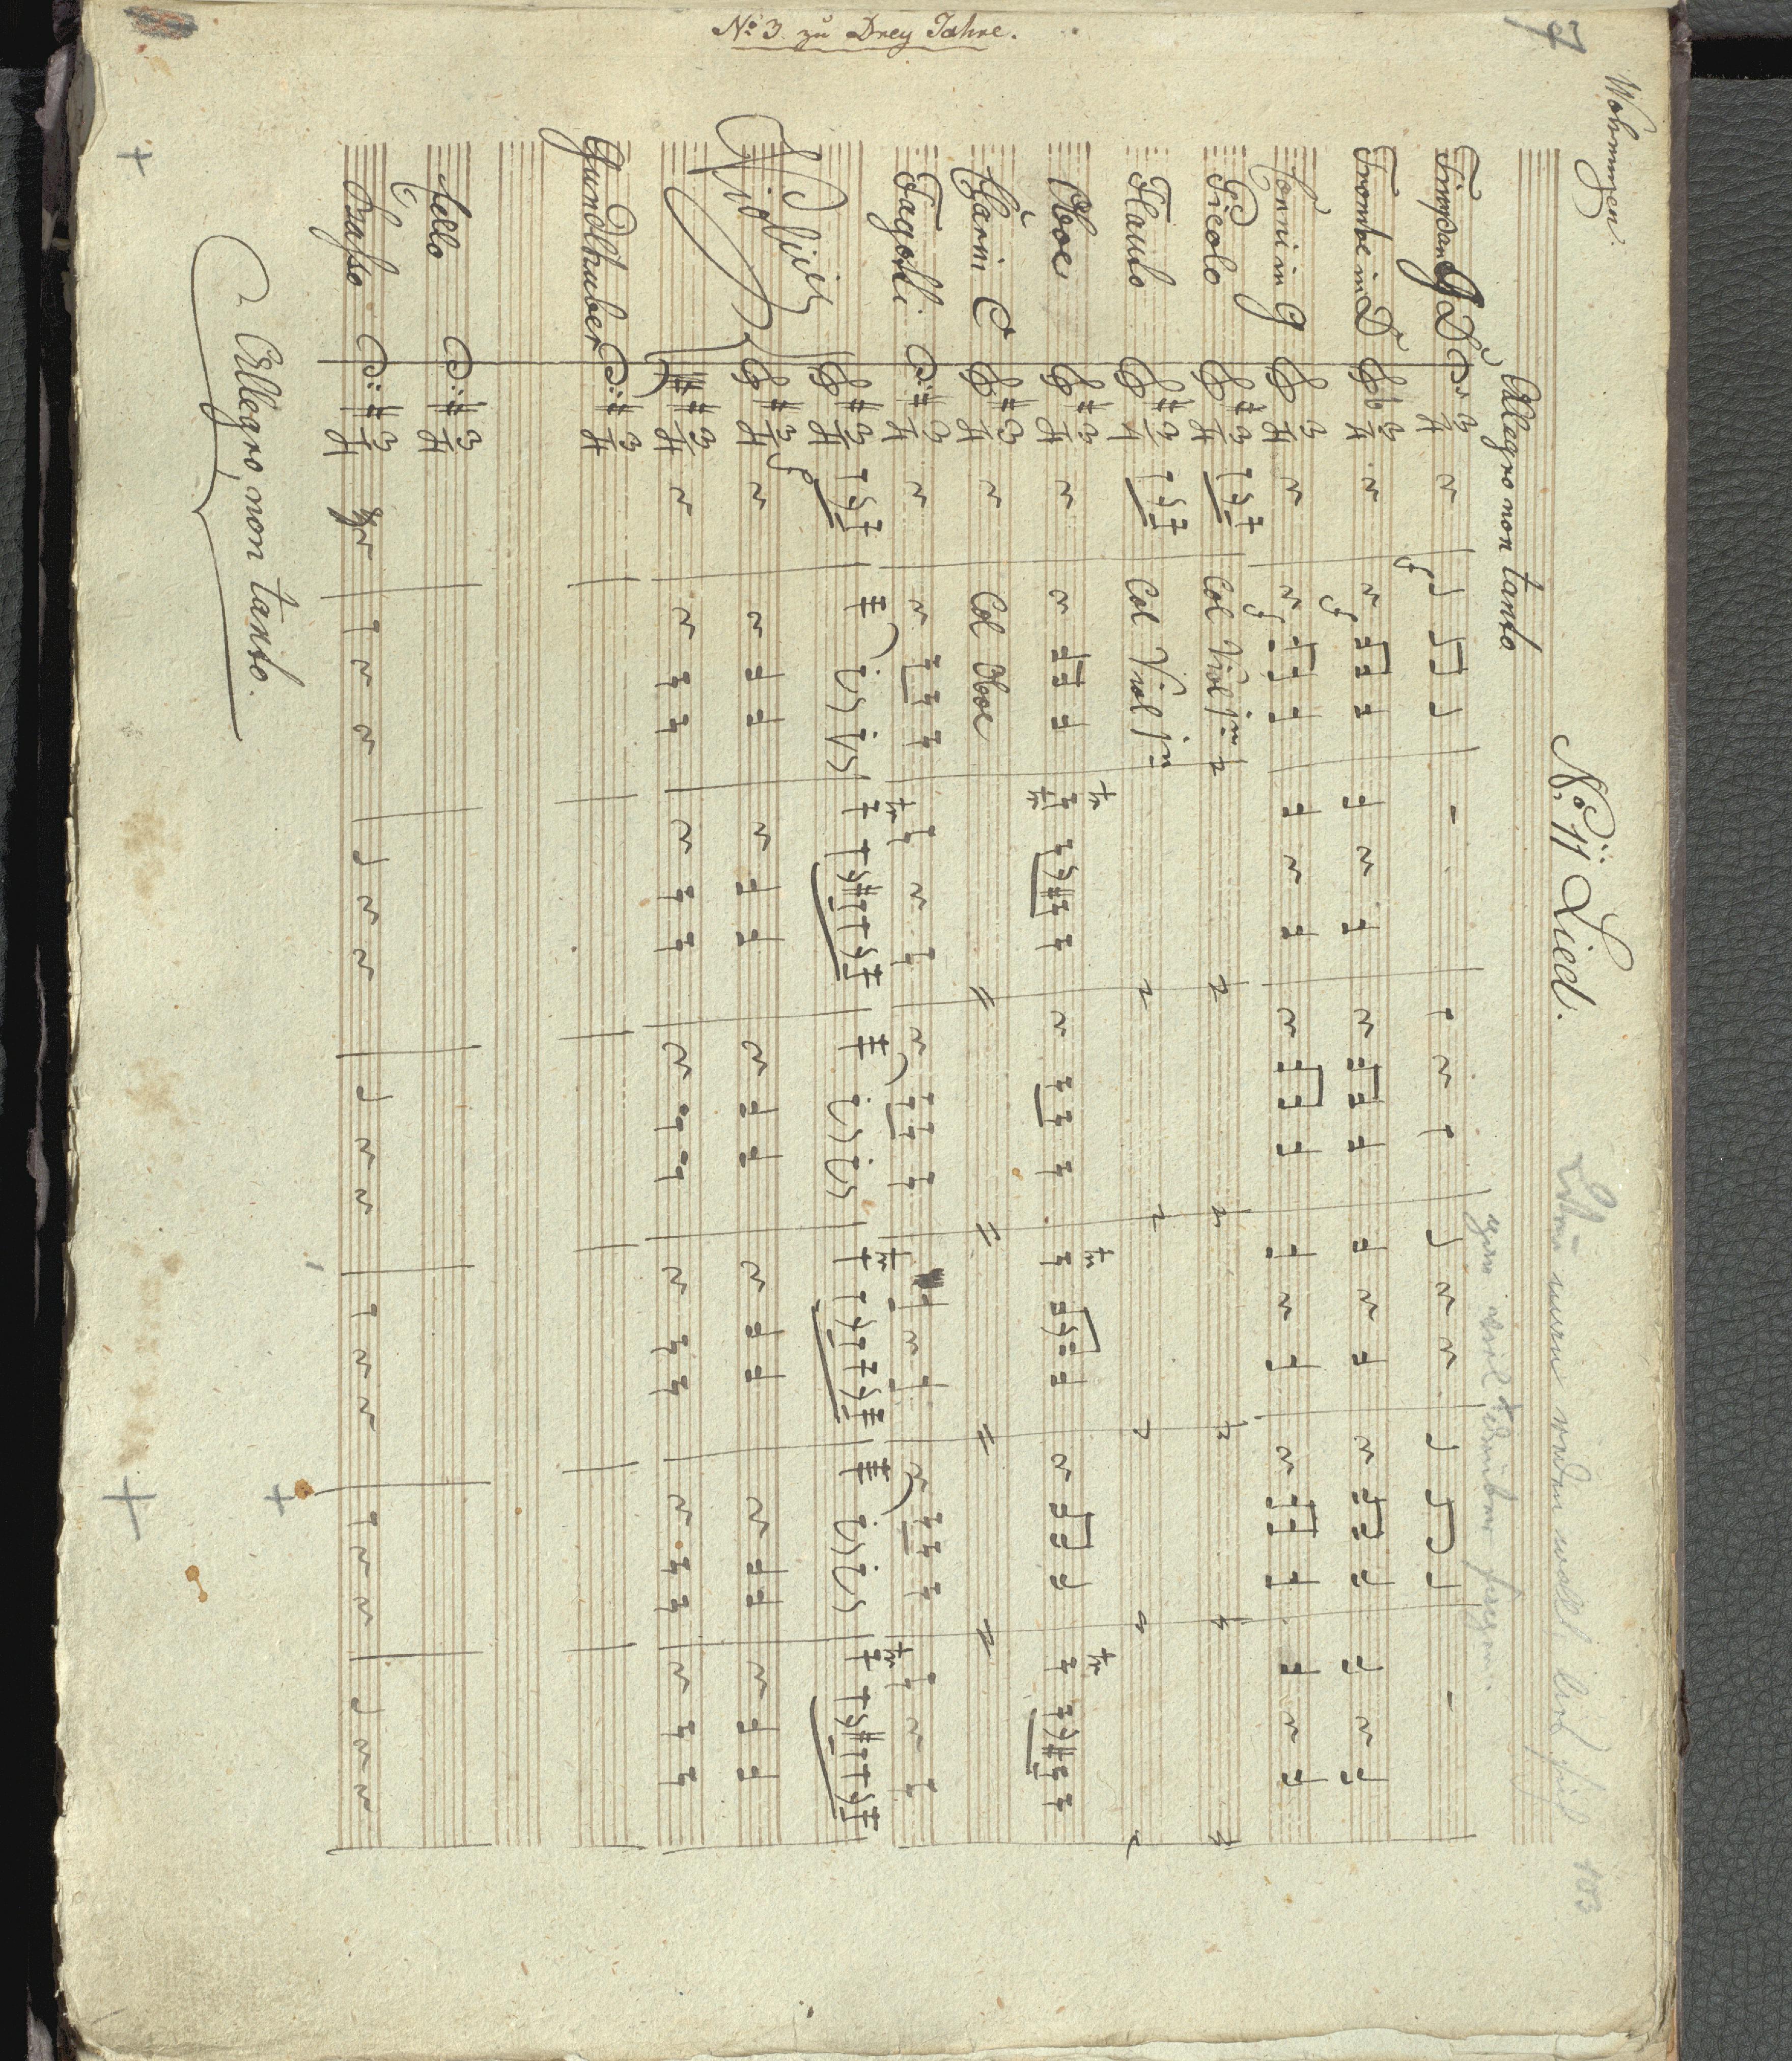 No 3 zu Drey Jahre.
7
Wohnungen.
No: 11 Lied.
Allegro non tanto
Timpani g D
Trombe in D
Corni in g
Picolo
Col Viol jmo
Flauto
Col Viol jmo
Oboe
Clarin C
Col Oboe
Fagotti
Violini
Gundlhuber
Cello
Basso
Allegro, non tanto.
103